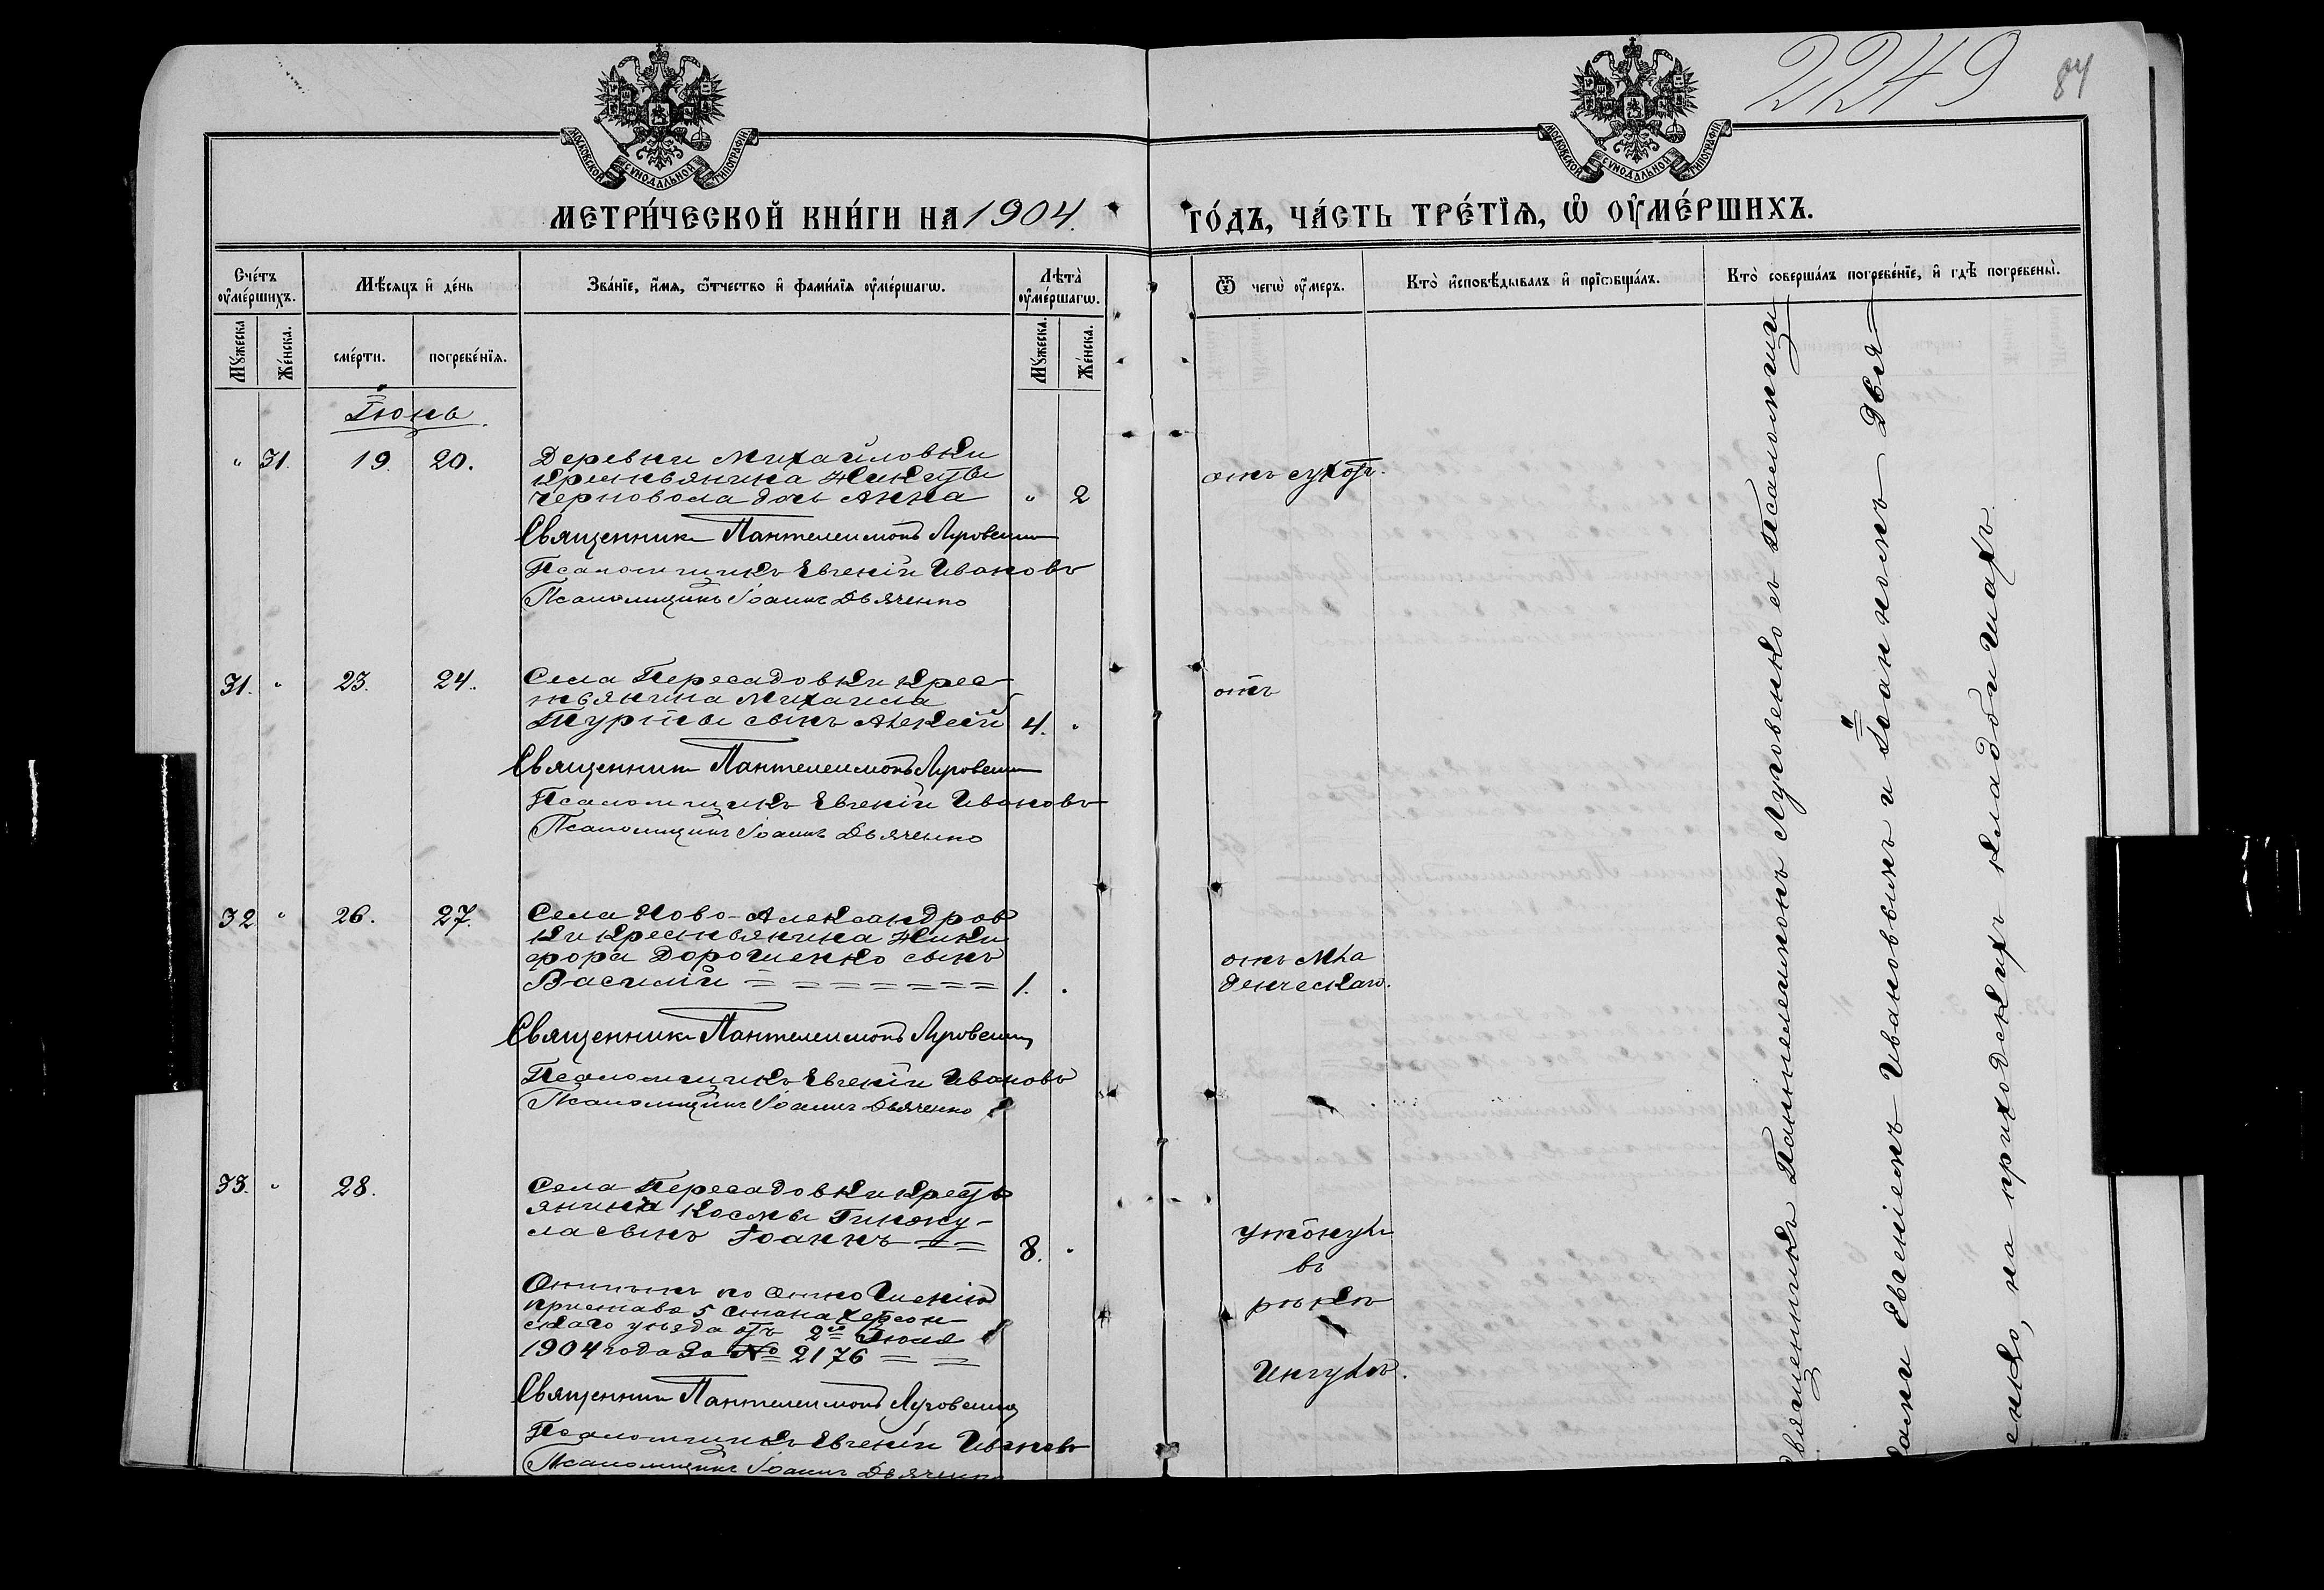 2249
84
МОСКОВСКОЙ СѴНОДАЛЬНОЙ ТИПОГРАФІИ
МОСКОВСКОЙ СѴНОДАЛЬНОЙ ТИПОГРАФІИ
МЕТРИ́ЧЕСКОЙ КНИ́ГИ НА 1904. ГО́ДЪ, ЧА́СТЬ ТРЕ́ТЇѦ, Ѡ҆ ОУ҆МЕ́РШИХЪ.
Сче́тъ оу҆ме́ршихъ.
Мѣ́сяцъ и҆ де́нь
Зва́нїе, и҆́мѧ, ѻ҆́тчество и҆ фами́лїѧ оу҆ме́ршагѡ.
Лѣта̀ оу҆ме́ршагѡ.
Ѿ чегѡ̀ оу҆́меръ.
Кто̀ и҆сповѣ́дывалъ и҆ прїѡбща́лъ.
Кто̀ соверша́лъ погребе́нїе, и҆ гдѣ̀ погребены̀.
Мꙋ́жеска
Же́нска.
сме́рти.
погребе́нїѧ.
Мꙋ́жеска.
Же́нска.
Іюнь.
" 31. 19. 20. Деревни Михайловки
крестьянина Никиты
Черновола дочь Анна " 2
отъ сухотъ.
Священникъ Пантелеимонъ Луговенко
Псаломщикъ Евгеній Ивановъ
Псаломщикъ Іоаннъ Дьяченко
31. " 23. 24. Села Пересадовки крес-
тьянина Михаила
сынъ Алексѣй 4. "
отъ
Священникъ Пантелеимонъ Луговенко
Псаломщикъ Евгеній Ивановъ
Псаломщикъ Іоаннъ Дьяченко
32 " 26. 27. Села Ново-Александров
ки крестьянина Ники
фора Дорошенко сынъ
Василій 1. "
отъ мла
денческаго.
Священникъ Пантелеимонъ Луговенко
Псаломщикъ Евгеній Ивановъ
Псаломщикъ Іоаннъ Дьяченко
33. " 28. Села Пересадовки кресть
янина Космы Гинжу-
ла сынъ Іоаннъ 8. "
утонулъ
въ
рѣкѣ
Ингулъ.
Отпѣтъ по отношенію
пристава 5 стана Херсон
скаго уѣзда отъ 2го Іюля
1904 года за № 2176
Священникъ Пантелеимонъ Луговенко
Псаломщикъ Евгеній Ивановъ
Псаломщикъ Іоаннъ Дьяченко
Священникъ Пантелеимонъ Луговенко съ псаломщи
ками Евгеніемъ Ивановымъ и Іоанномъ Дья
ченко, на приходскихъ кладбищахъ.